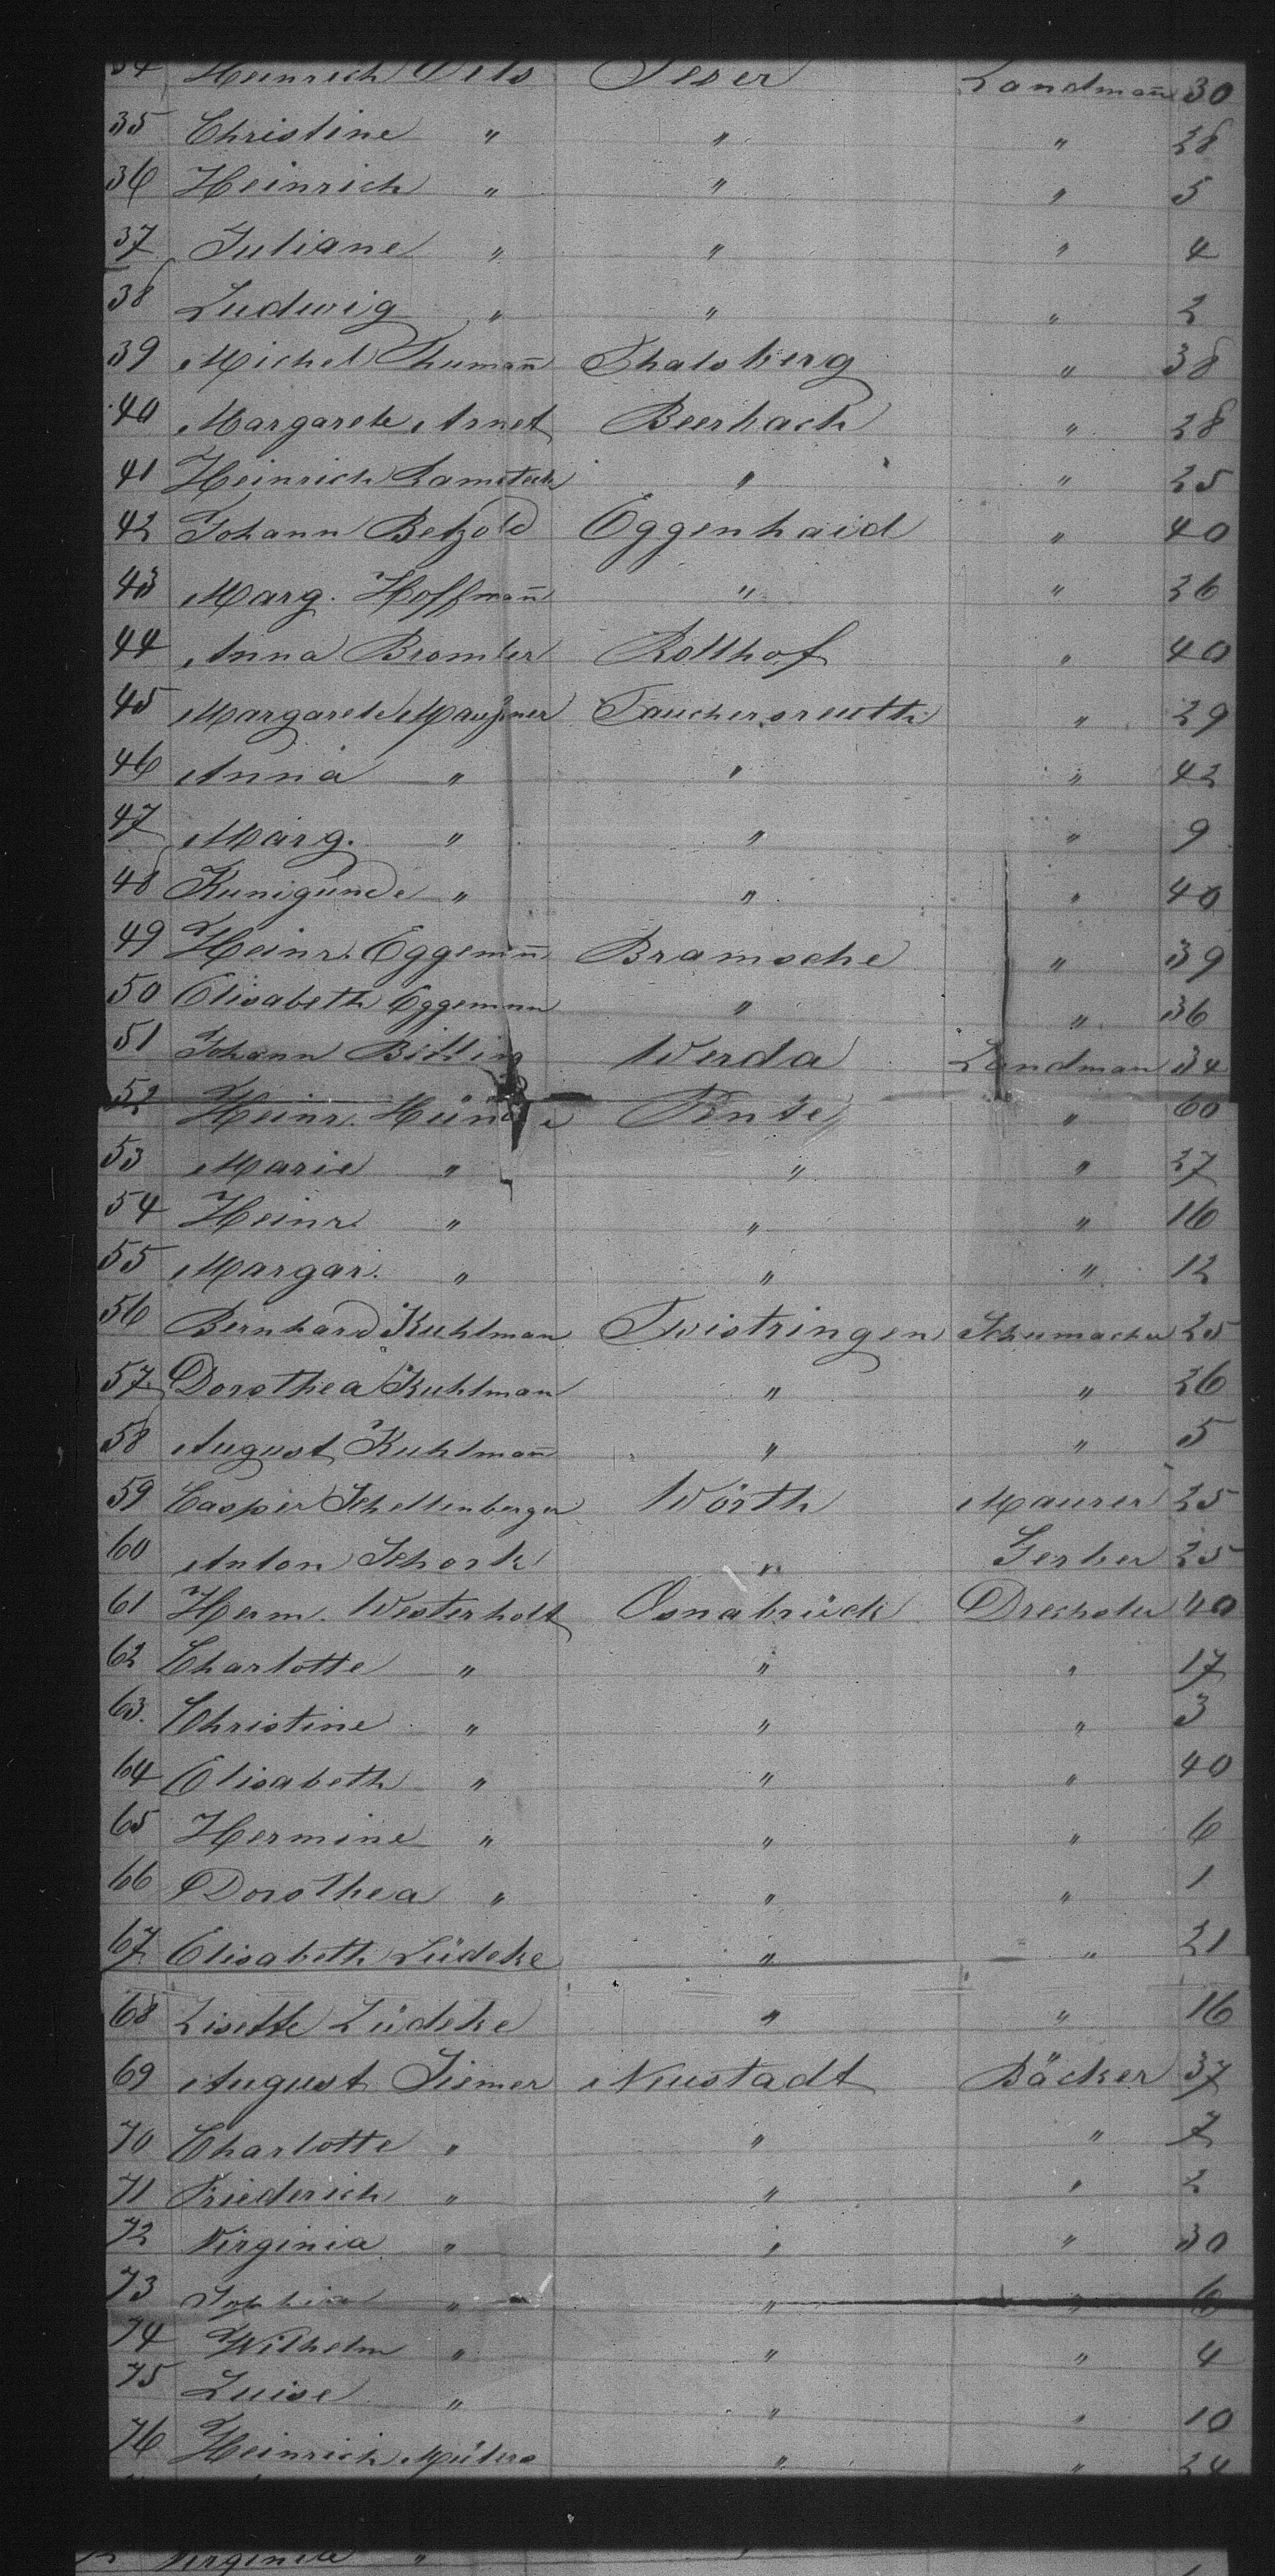 34 Heinrich Dels Leser Landmañ 30
35 Christine " " " 28
36 Heinrich " " " 5
37 Juliane " " " 4
38 Ludwig " " " 2
39 Michel Thumañ Thalsberg " 38
40 Margarete Arnet Beerbach " 28
41 Heinrich " " 25
42 Johann Betzold Eggenhaid " 40
43 Marg. Hoffmañ " " 26
44 Anna Bromler Rollhof " 40
45 Margarete Maußner Tauchersreuth " 29
46 Anna " " " 42
47 Marg. " " " 9
48 Kunigunde " " " 40
49 Heinr. Eggemñ Bramsche " 39
50 Elisabeth Eggemnn " " 36
51 Johann Werda Landman 34
52 Heinr. Pente " 60
53 Marie " " " 27
54 Heinr. " " " 16
55 Margar. " " " 12
56 Bernhard Kuhlman Twistringen Schumacher 25
57 Dorothea Kuhlman " " 26
58 August Kuhlmañ " " 5
59 Casper Schellenberger Wörth Maurer 25
60 Anton Schork " Gerber 25
61 Herm. Westerholt Osnabrück Drechsler 40
62 Charlotte " " " 17
63. Christine " " " 3
64 Elisabeth " " " 40
65 Hermine " " " 6
66 Dorothea " " " 1
67 Elisabeth Lüdeke " " 21
68 Lisette Lüdeke " " 16
69 August Neustadt Bäcker 37
70 Charlotte " " " 7
71 Friederich " " " 2
72 Virginia " " " 30
73 Sophia " " " 6
74 Wilhelm " " " 4
75 Luise " " " 10
76 Heinrich Müters " " 24
Virginia "